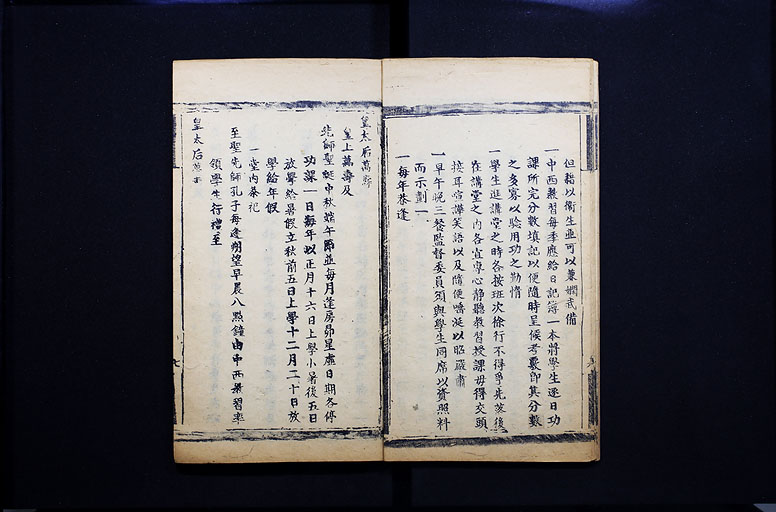 但藉以衛生並可以兼嫻武備
一中西教習每季應給日記簿一本將學生逐日功
課所完分數填記以便隨時呈候考覈即其分數
之多寡以驗用功之勤惰
一學生進講堂之時各按班次徐行不得爭先落後
在講堂之內各宜專心靜聽教習授課毋得交頭
接耳喧譁笑語以及隨便嚏涎以昭嚴肅
一早午晚三餐監督委員須與學生同席以資照料
而示劃一
一每年恭逢
皇太后萬壽
皇上萬壽及
先師聖誕中秋端午節並每月逢房昴星虛日期各停
功課一日每年以正月十六日上學小暑後五日
放學給暑假立秋前五日上學十二月二十日放
學給年假
一堂內恭祀
至聖先師孔子每逢朔望早晨八點鐘由中西教習率
領學生行禮至
皇太后